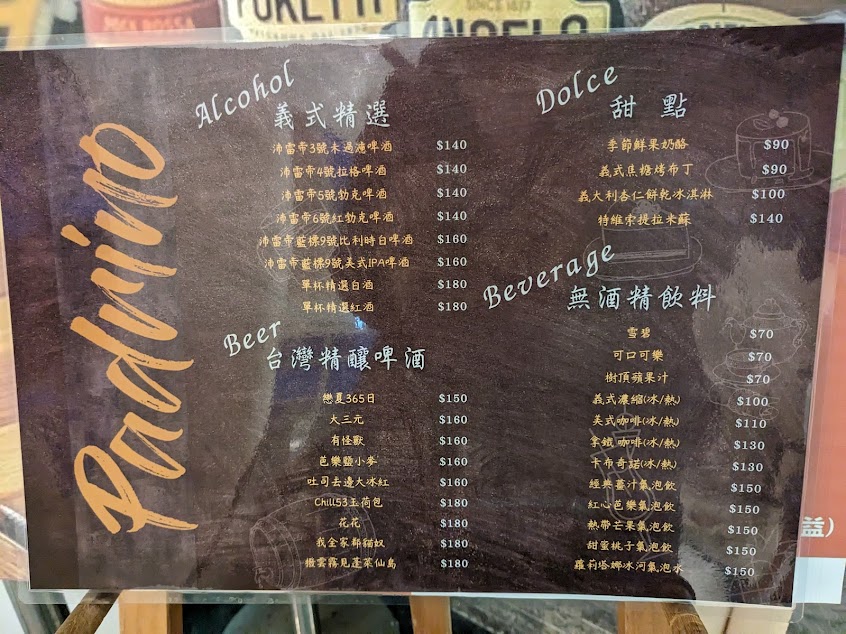 PORETTI
SINCE 1877
ANGELO
Padrino
Alcohol
義式精選
沛雷帝3號未過濾啤酒 $140
沛雷帝4號拉格啤酒 $140
沛雷帝5號勃克啤酒 $140
沛雷帝6號紅勃克啤酒 $140
沛雷帝藍標9號比利時白啤酒 $160
沛雷帝藍標9號美式IPA啤酒 $160
單杯精選白酒 $180
單杯精選紅酒 $180
Beer
台灣精釀啤酒
戀夏365日 $150
大三元 $160
有怪獸 $160
芭樂鹽小麥 $160
吐司去邊大冰紅 $160
Chill53玉荷包 $180
花花 $180
我全家都貓奴 $180
撥雲霧見蓬萊仙島 $180
Dolce
甜 點
季節鮮果奶酪 $90
義式焦糖烤布丁 $90
義大利杏仁餅乾冰淇淋 $100
特維索提拉米蘇 $140
Beverage
無酒精飲料
雪碧 $70
可口可樂 $70
樹頂蘋果汁 $70
義式濃縮(冰/熱) $100
美式咖啡(冰/熱) $110
拿鐵咖啡(冰/熱) $130
卡布奇諾(冰/熱) $130
經典薑汁氣泡飲 $150
紅心芭樂氣泡飲 $150
熱帶芒果氣泡飲 $150
甜蜜桃子氣泡飲 $150
蘿莉塔娜冰河氣泡水 $150
益)